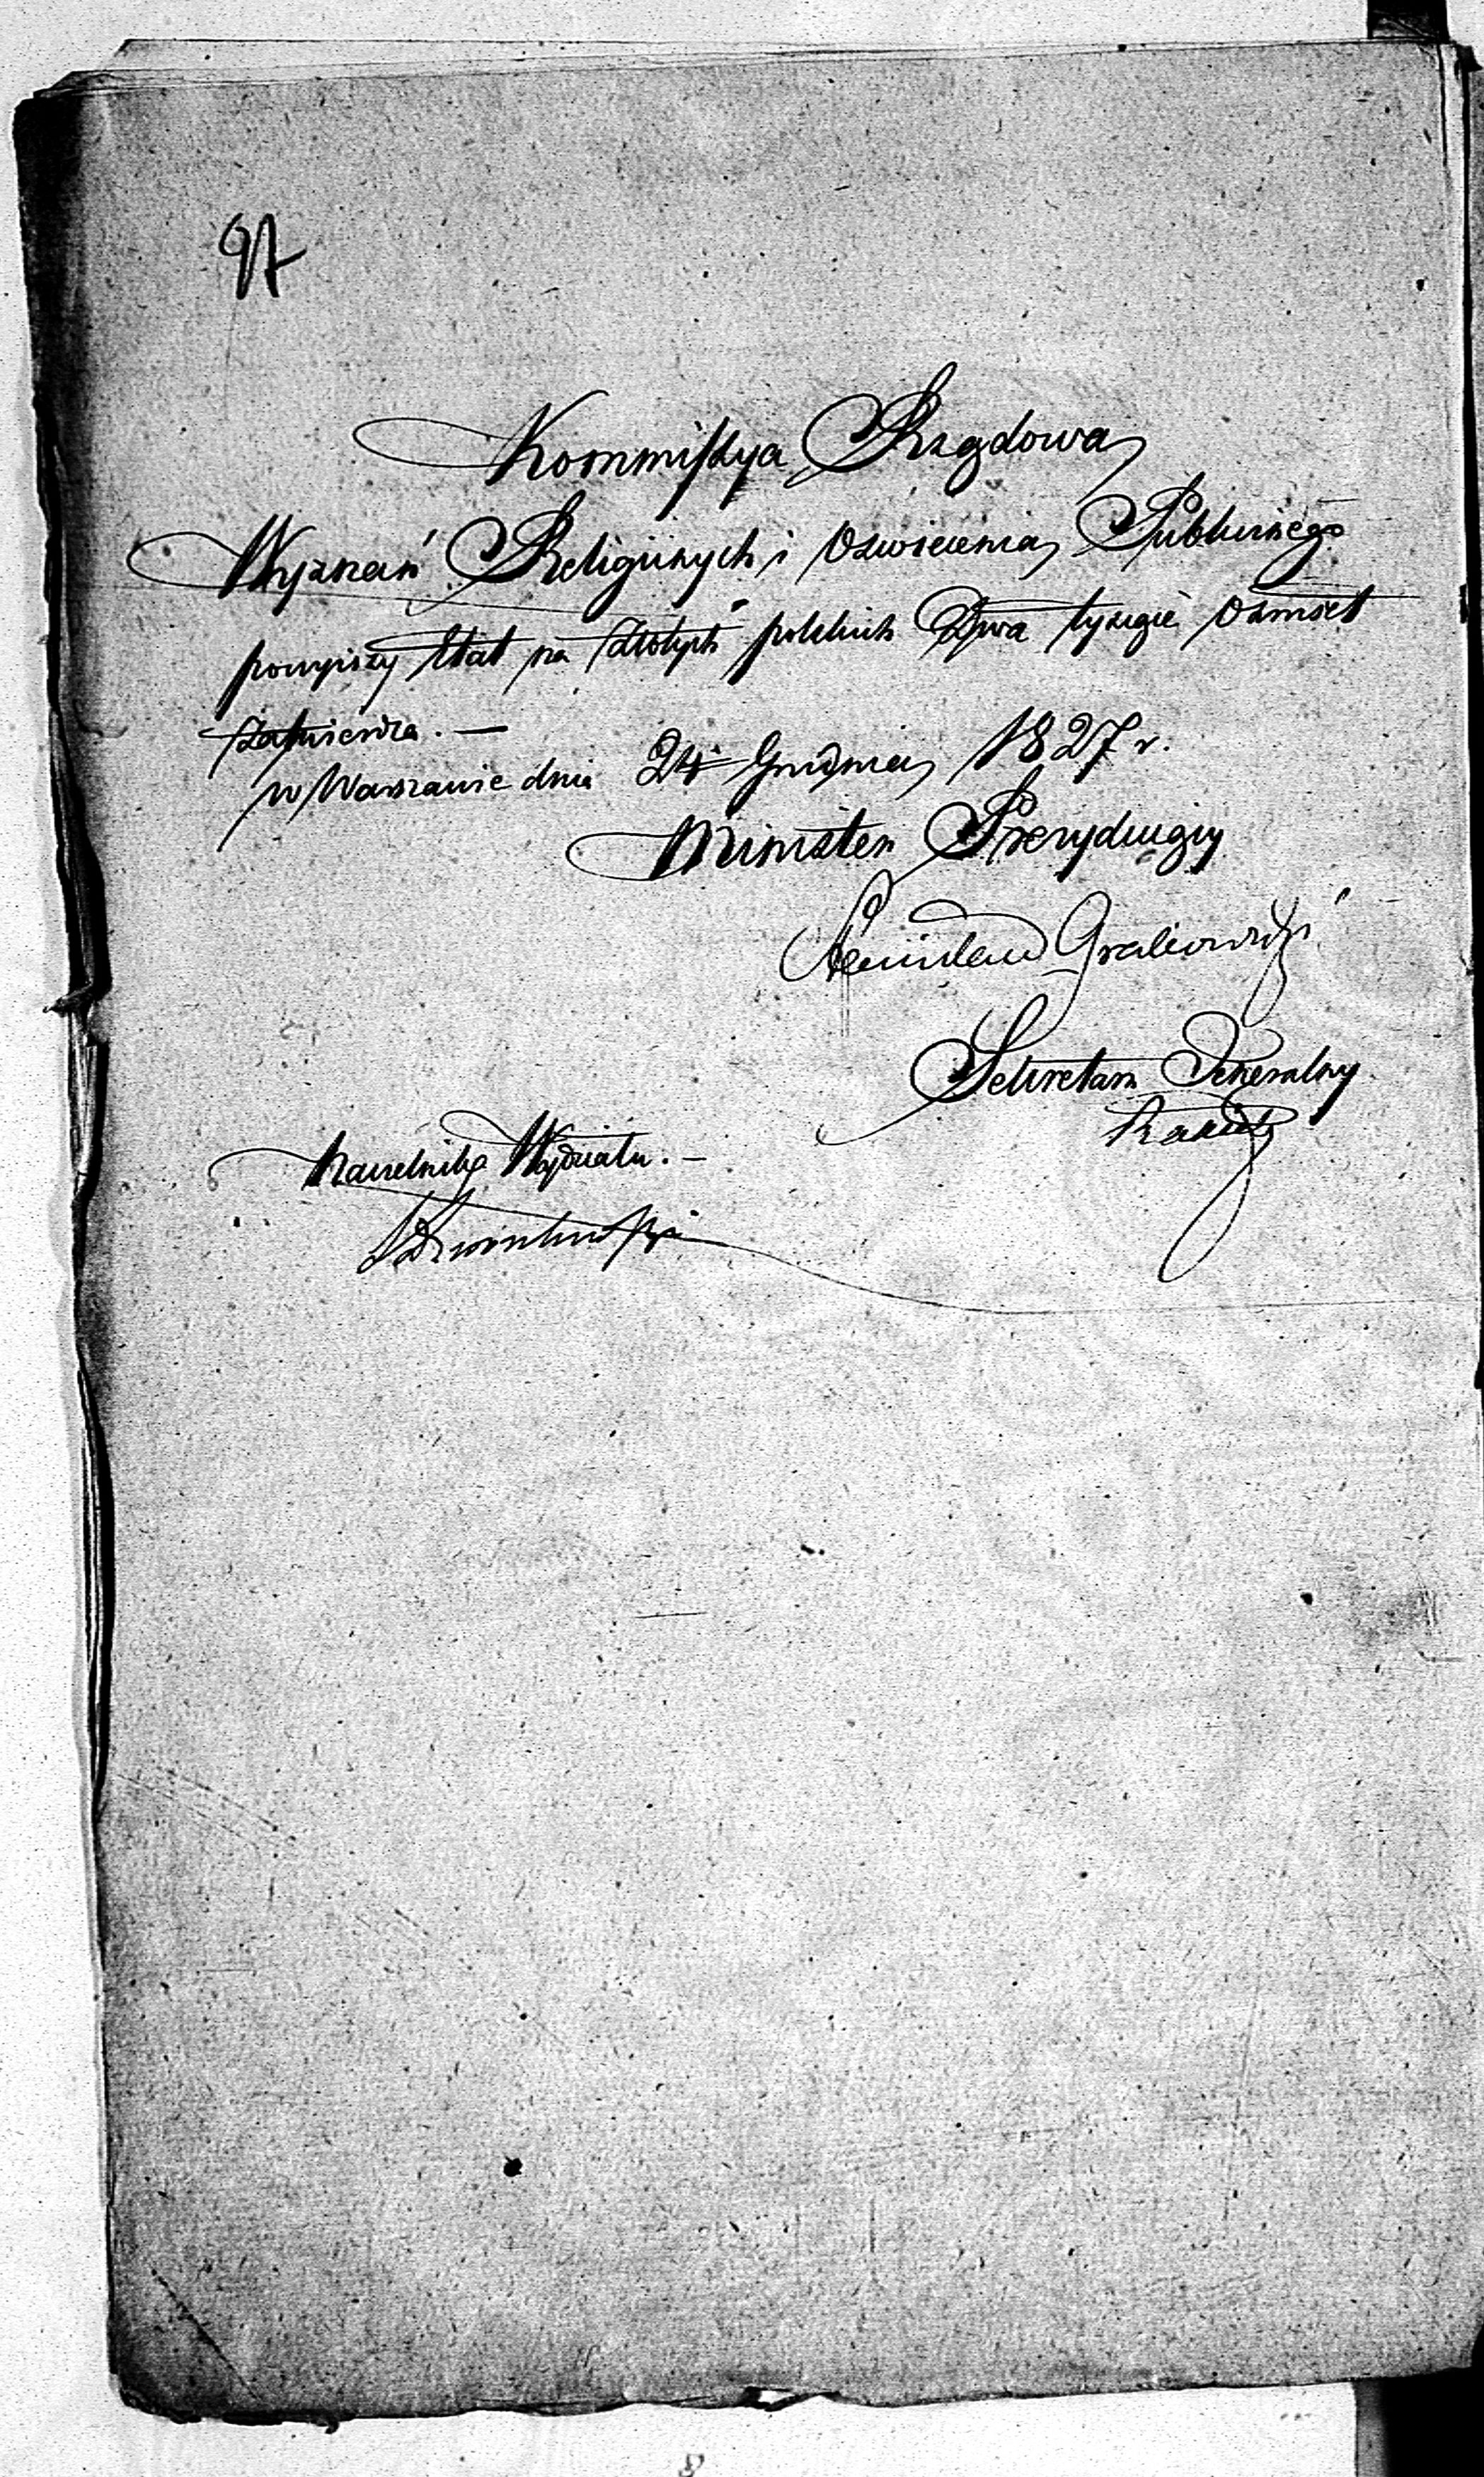 97
Kommissya Rządowa
Wyznań Religiinych i Oświecenia Publicznego
powyższy Etat na Złotych polskich Dwa tysiące Osmset
Zatwierdza. —
w Warszawie dnia 24 Grudnia 1827 r.
Minister Prezyduiący
Stanisław Grabowski
Sekretarz Jeneralny
Naczelnik Wydziału. —